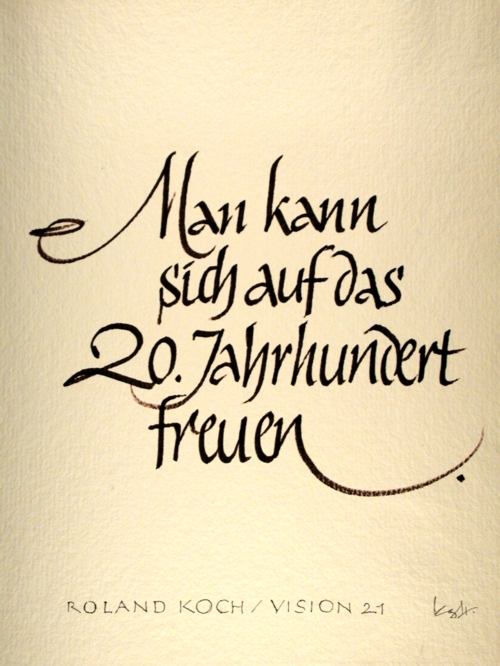 Man kann
sich auf das
20. Jahrhundert
freuen.
ROLAND KOCH / VISION 21